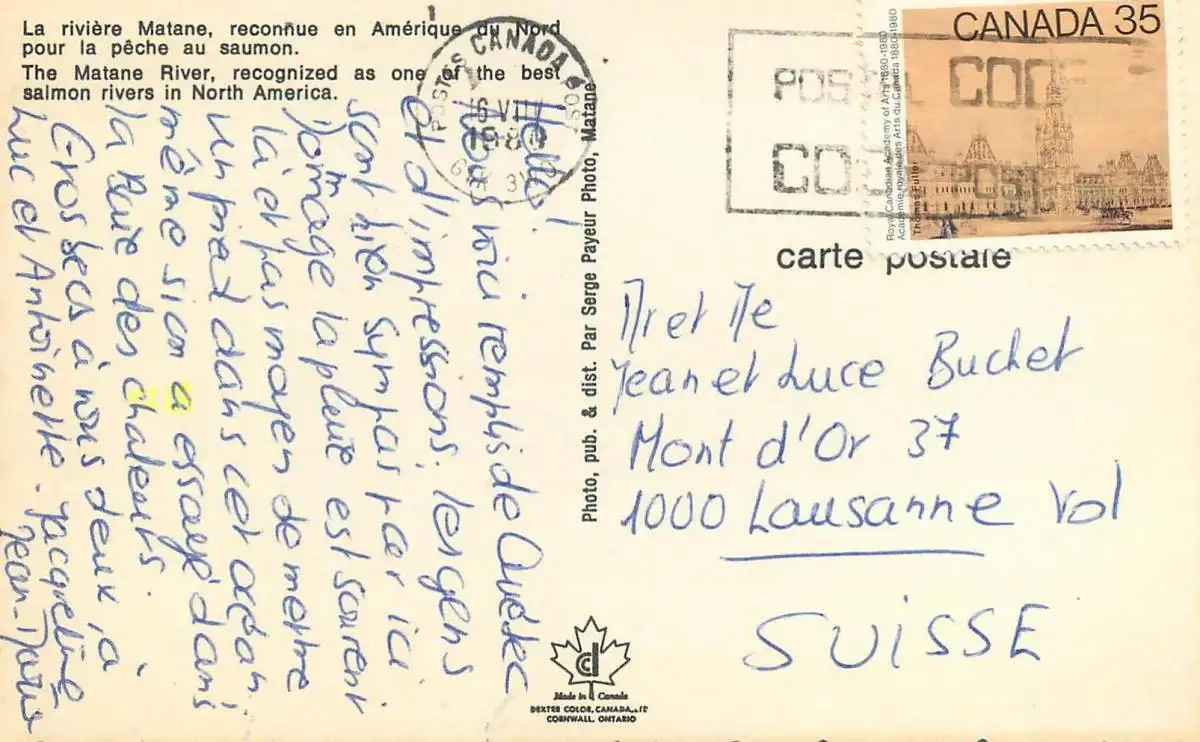 La rivière Matane, reconnue en Amérique du Nord
pour la pêche au saumon.
The Matane River, recognized as one of the best
salmon rivers in North America.
Hello !
Nous voici remplis de Québec
et d'impressions; les gens
sont bien sympas par ici
Dommage la pluie est souvent
là et pas moyen de mettre
un pied dans cet océan
même si on a essayé dans
la Baie des chaleurs.
Gros becs à vous deux, à
Luc et Antoinette. Jacqueline
Jean-Marie
Photo, pub. & dist. Par Serge Payeur Photo, Matane
POSTES CANADA POST
16 VII
198
G
CANADA 35
Royal Canadian Academy of Arts 1880-1980
Académie royale des Arts du Canada 1880-1980
Thomas Fuller
POSTAL CODE
CODE POSTAL
carte postale
Mr et Me
Jean et Luce Buchet
Mont d'Or 37
1000 Lausanne Vd
SUISSE
cd
Made in Canada
DEXTER COLOR, CANADA, LTD
CORNWALL, ONTARIO